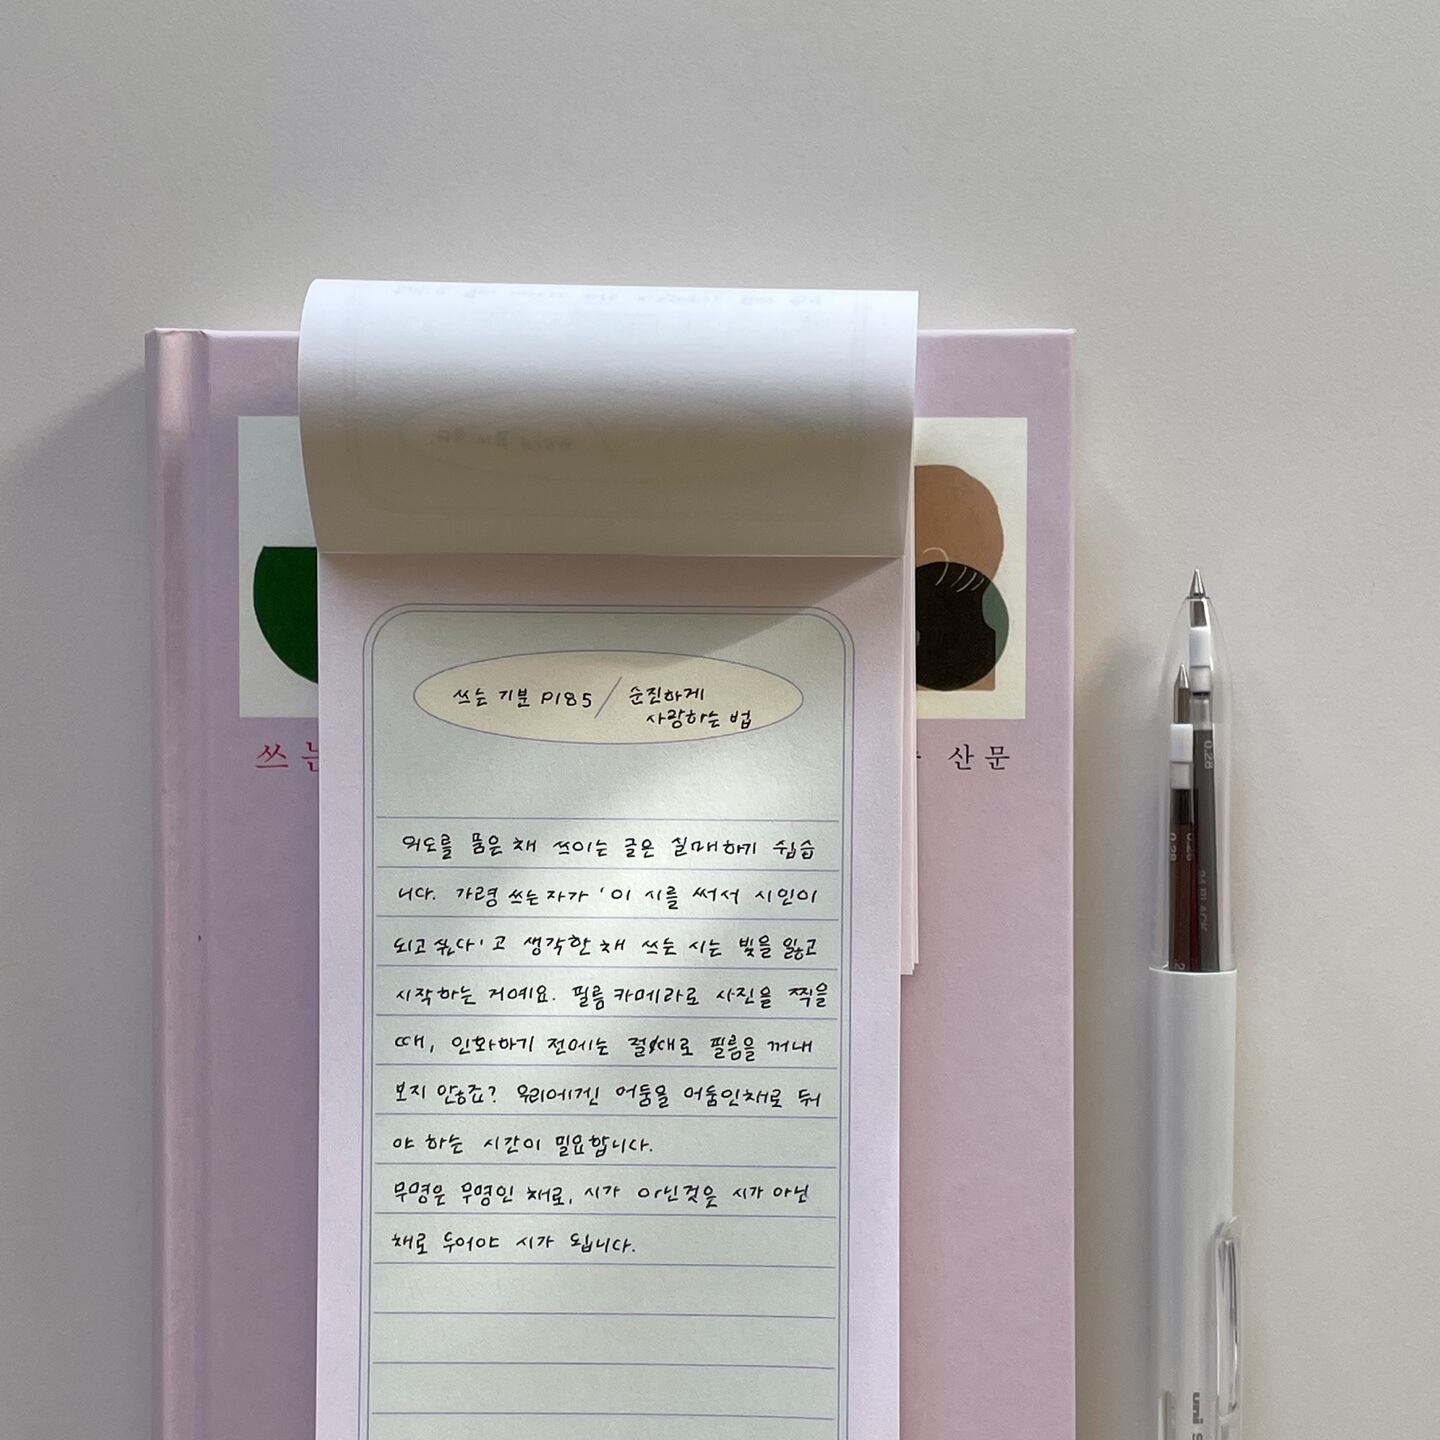 쓰는 기분 P185 / 순진하게
사랑하는 법
쓰
산문
의도를 품은 채 쓰이는 글은 실패하기 쉽습
니다. 가령 쓰는자가 '이 시를 써서 시인이
되고 싶다'고 생각한 채 쓰는 시는 빛을 잃고
시작하는 거예요. 필름 카메라로 사진을 찍을
때, 인화하기 전에는 절대로 필름을 꺼내
보지 않죠? 우리에겐 어둠을 어둠인채로 둬
야 하는 시간이 필요합니다.
무명은 무명인 채로, 시가 아닌것은 시가 아닌
채로 두어야 시가 됩니다.
0.28
0.28
0.28
BLACK
uni